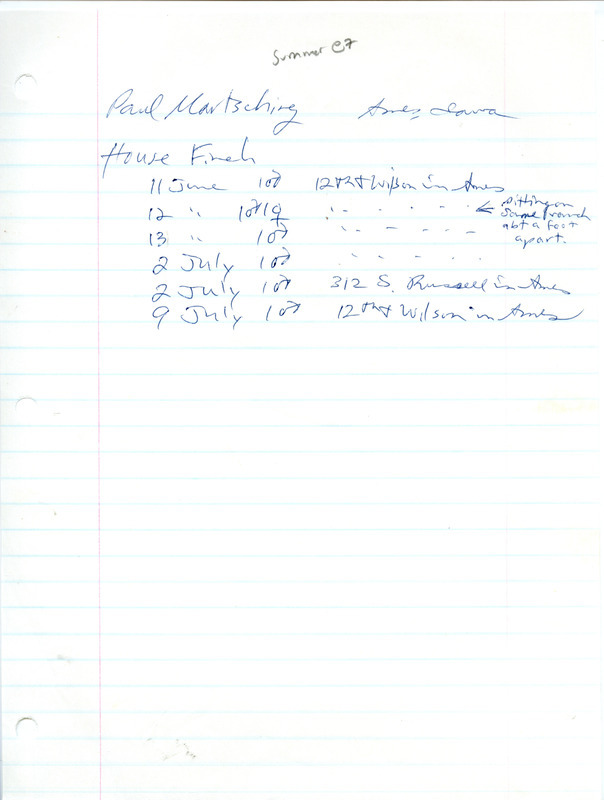 Summer 87
Paul Martsching Ames, Iowa
House Finch
11 June 1♂ 12th & Wilson in Ames
12 " 1♂ 1♀ " - - - ← sitting on same branch abt a foot apart.
13 " 1♂ " - - - -
2 July 1♂ " - - -
2 July 1♂ 312 S. Russell in Ames
9 July 1♂ 12th & Wilson in Ames